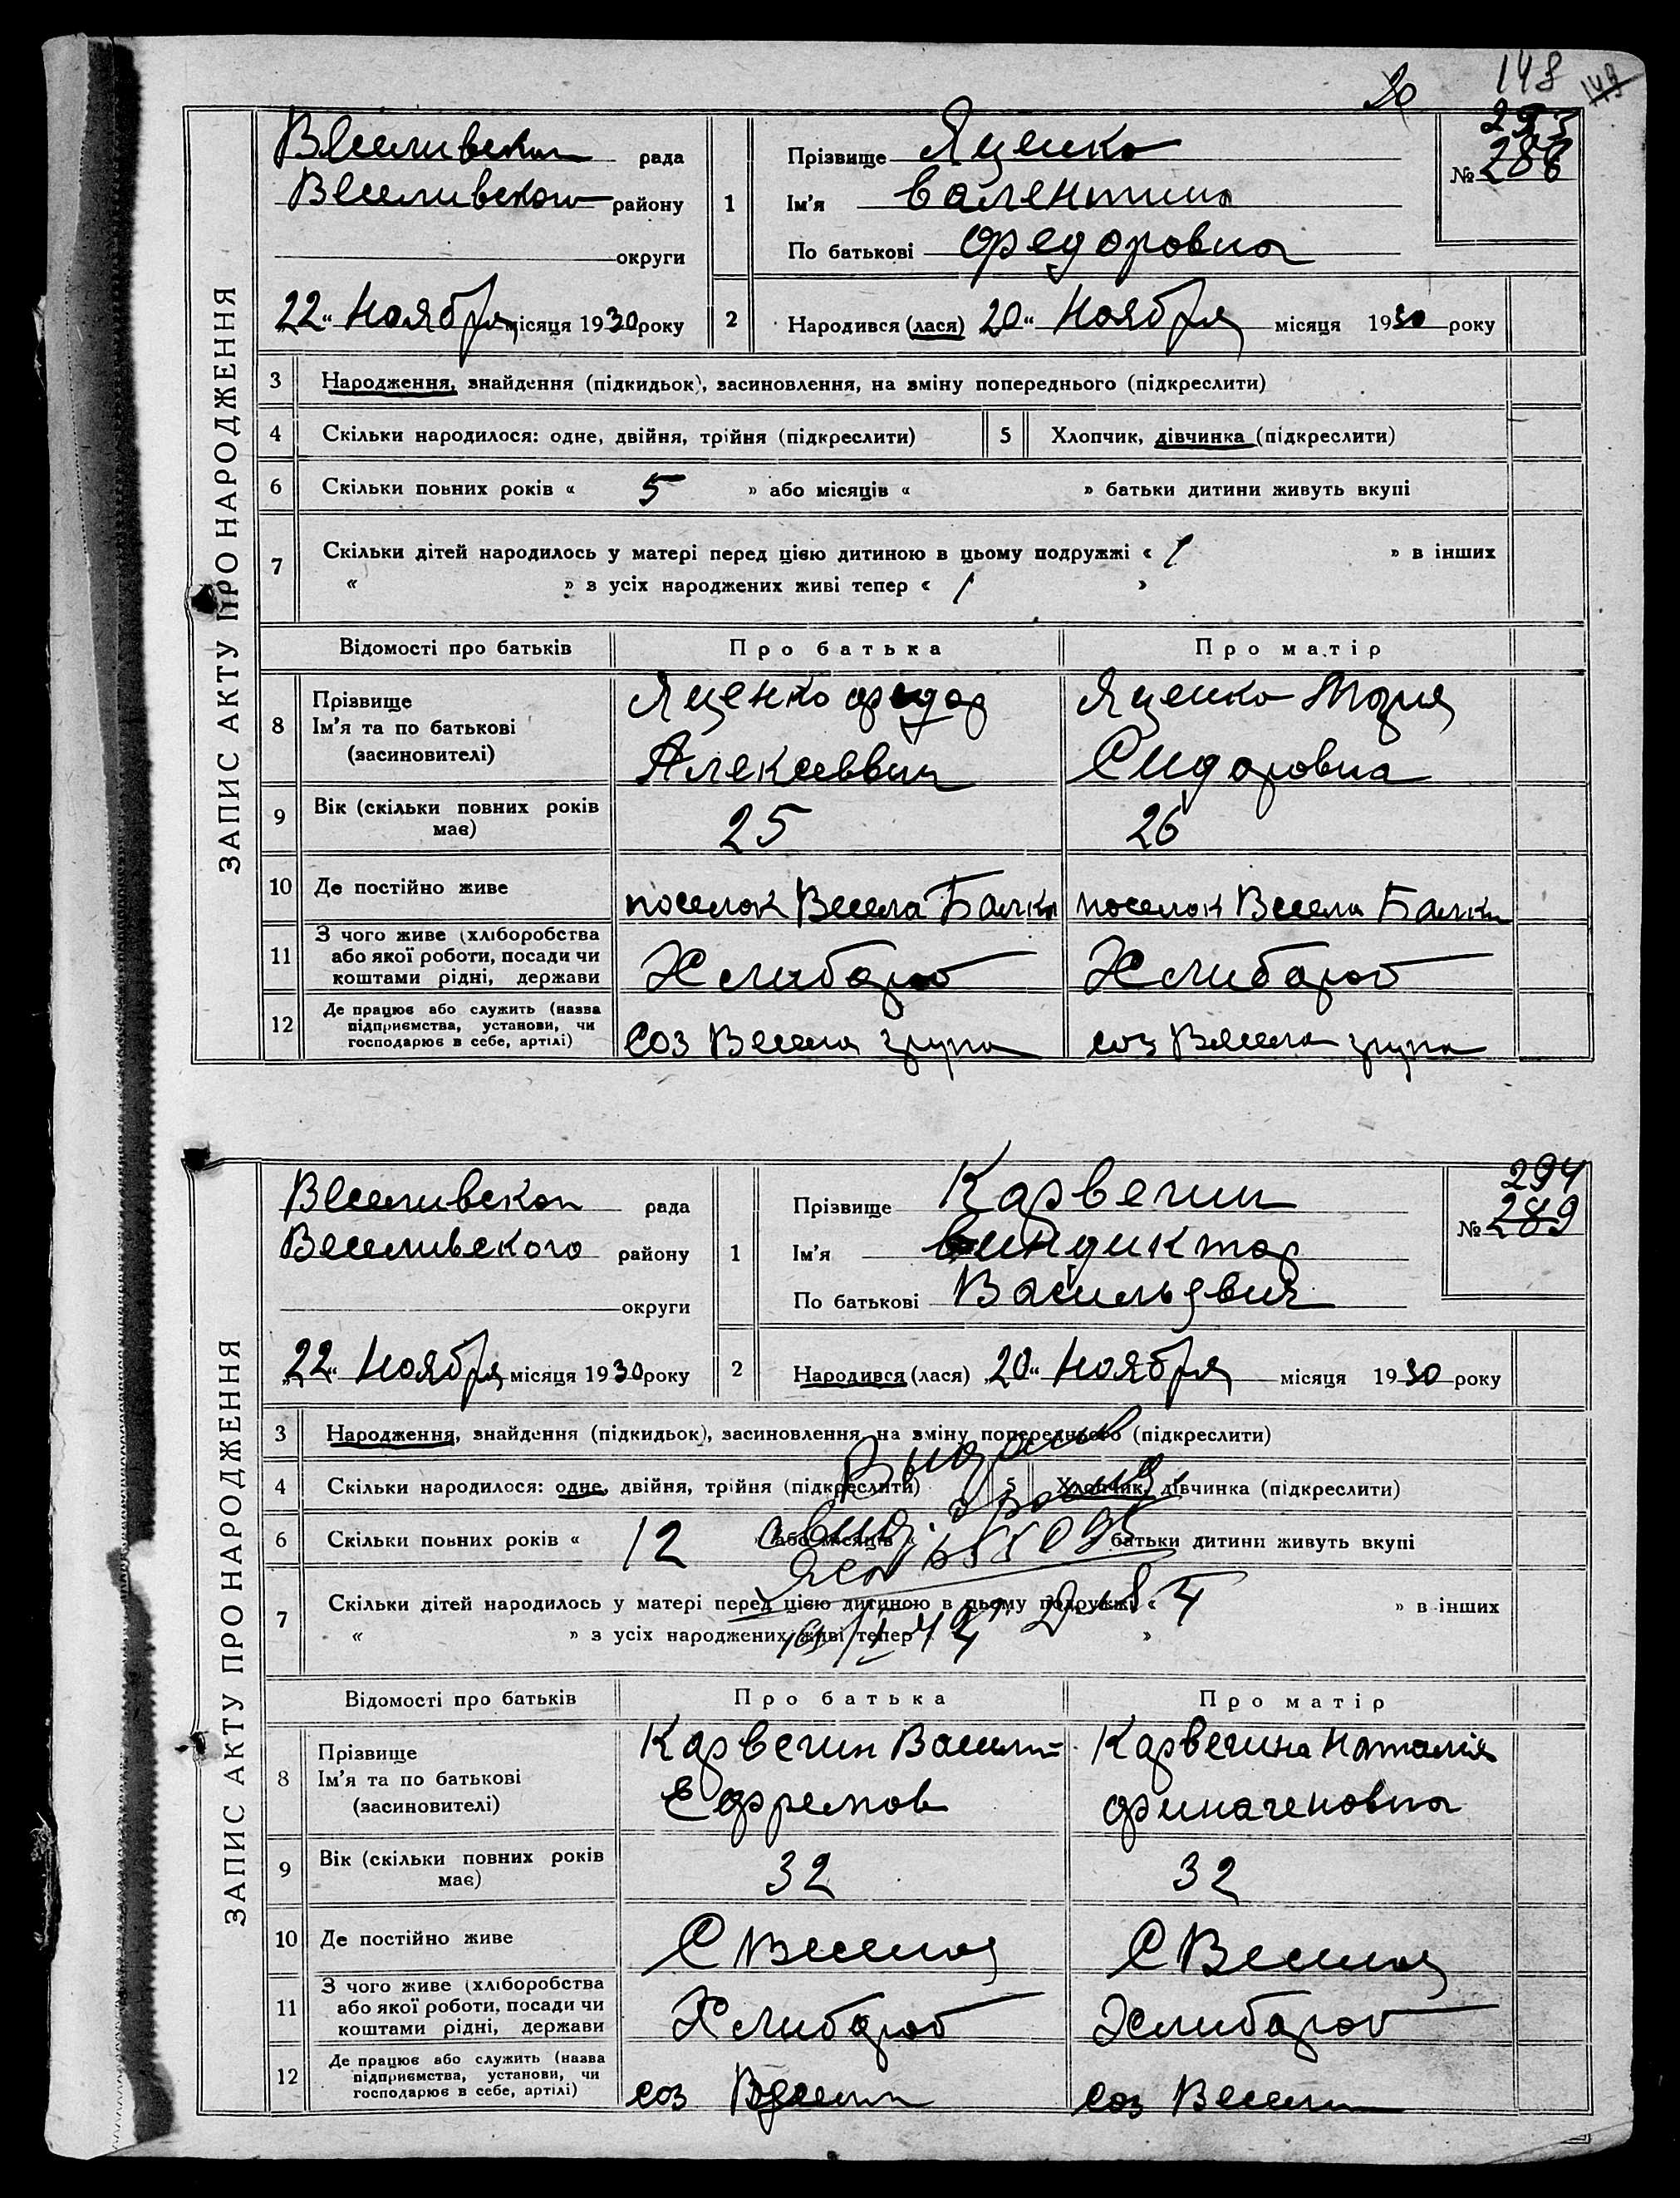 148
149
ЗАПИС АКТУ ПРО НАРОДЖЕННЯ
Веселивской рада
Веселивского району
округи
22 „ Ноября місяця 1930 року
1
Прізвище Яценко
Ім'я Валентина
По батькові Федоровна
293
№ 288
2
Народився (лася) 20 „ Ноября місяця 1930 року
3 Народження, знайдення (підкидьок), засиновлення, на зміну попереднього (підкреслити)
4 Скільки народилося: одне, двійня, трійня (підкреслити) 5 Хлопчик, дівчинка (підкреслити)
6 Скільки повних років « 5 » або місяців « » батьки дитини живуть вкупі
7 Скільки дітей народилось у матері перед цією дитиною в цьому подружжі « 1 » в інших
« » з усіх народжених живі тепер « 1 »
Відомості про батьків Про батька Про матір
8 Прізвище
Ім'я та по батькові
(засиновителі)
Яценко Федор
Алексеевич
Яценко Мария
Сидоровна
9 Вік (скільки повних років має) 25 26
10 Де постійно живе поселок Весела Балка поселок Весела Балка
11 З чого живе (хліборобства
або якої роботи, посади чи
коштами рідні, держави
Хлибороб Хлибороб
12 Де працює або служить (назва
підприємства, установи, чи
господарює в себе, артілі)
Соз Весела група соз Весела група
ЗАПИС АКТУ ПРО НАРОДЖЕННЯ
Веселивской рада
Веселивского району
округи
22 „ Ноября місяця 1930 року
1
Прізвище Карвегин
Ім'я Виндиктор
По батькові Васильевич
294
№ 289
2
Народився (лася) 20 „ Ноября місяця 1930 року
3 Народження, знайдення (підкидьок), засиновлення, на зміну попереднього (підкреслити)
4 Скільки народилося: одне, двійня, трійня (підкреслити) 5 Хлопчик, дівчинка (підкреслити)
6 Скільки повних років « 12 » або місяців « » батьки дитини живуть вкупі
7 Скільки дітей народилось у матері перед цією дитиною в цьому подружжі « » в інших
« » з усіх народжених живі тепер « »
Відомості про батьків Про батька Про матір
8 Прізвище
Ім'я та по батькові
(засиновителі)
Карвегин Васили
Ефремов
Карвегина Наталия
Финагеновна
9 Вік (скільки повних років має) 32 32
10 Де постійно живе С Веселоя С Веселоя
11 З чого живе (хліборобства
або якої роботи, посади чи
коштами рідні, держави
Хлибороб Хлибороб
12 Де працює або служить (назва
підприємства, установи, чи
господарює в себе, артілі)
соз соз